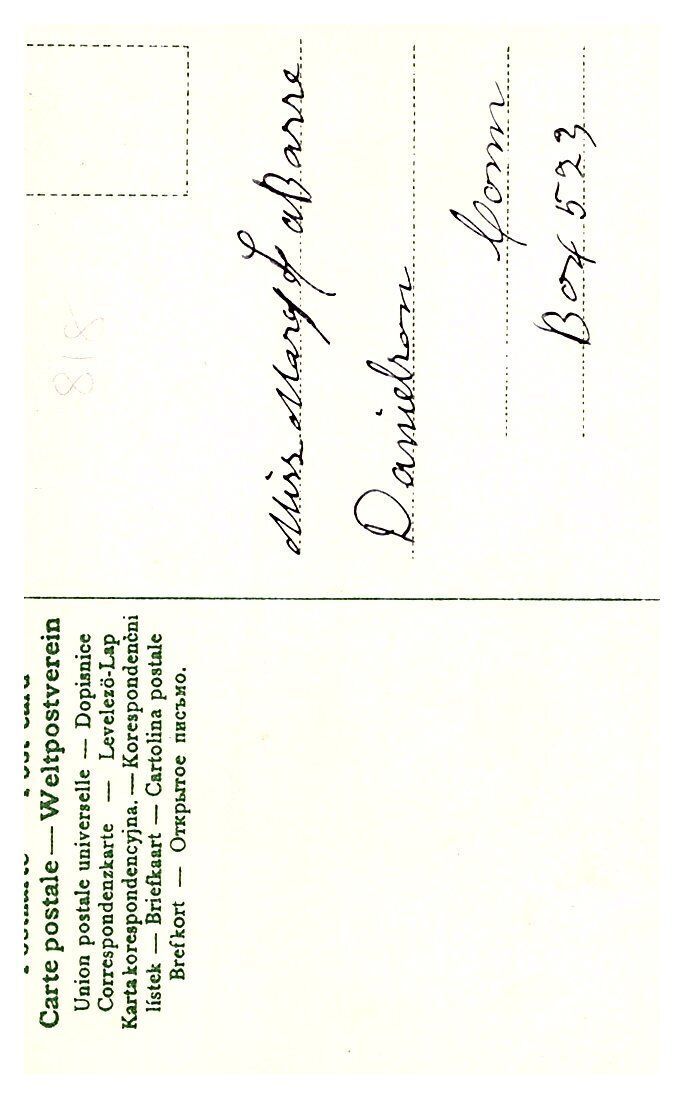 Carte postale — Weltpostverein
Union postale universelle — Dopisnice
Correspondenzkarte — Levelezö-Lap
Karta korespondencyjna. — Korespondenčni
lístek — Briefkaart — Cartolina postale
Brefkort — Открытое письмо.
818
Miss Mary LaBarre
Danielson
Conn
Box 523